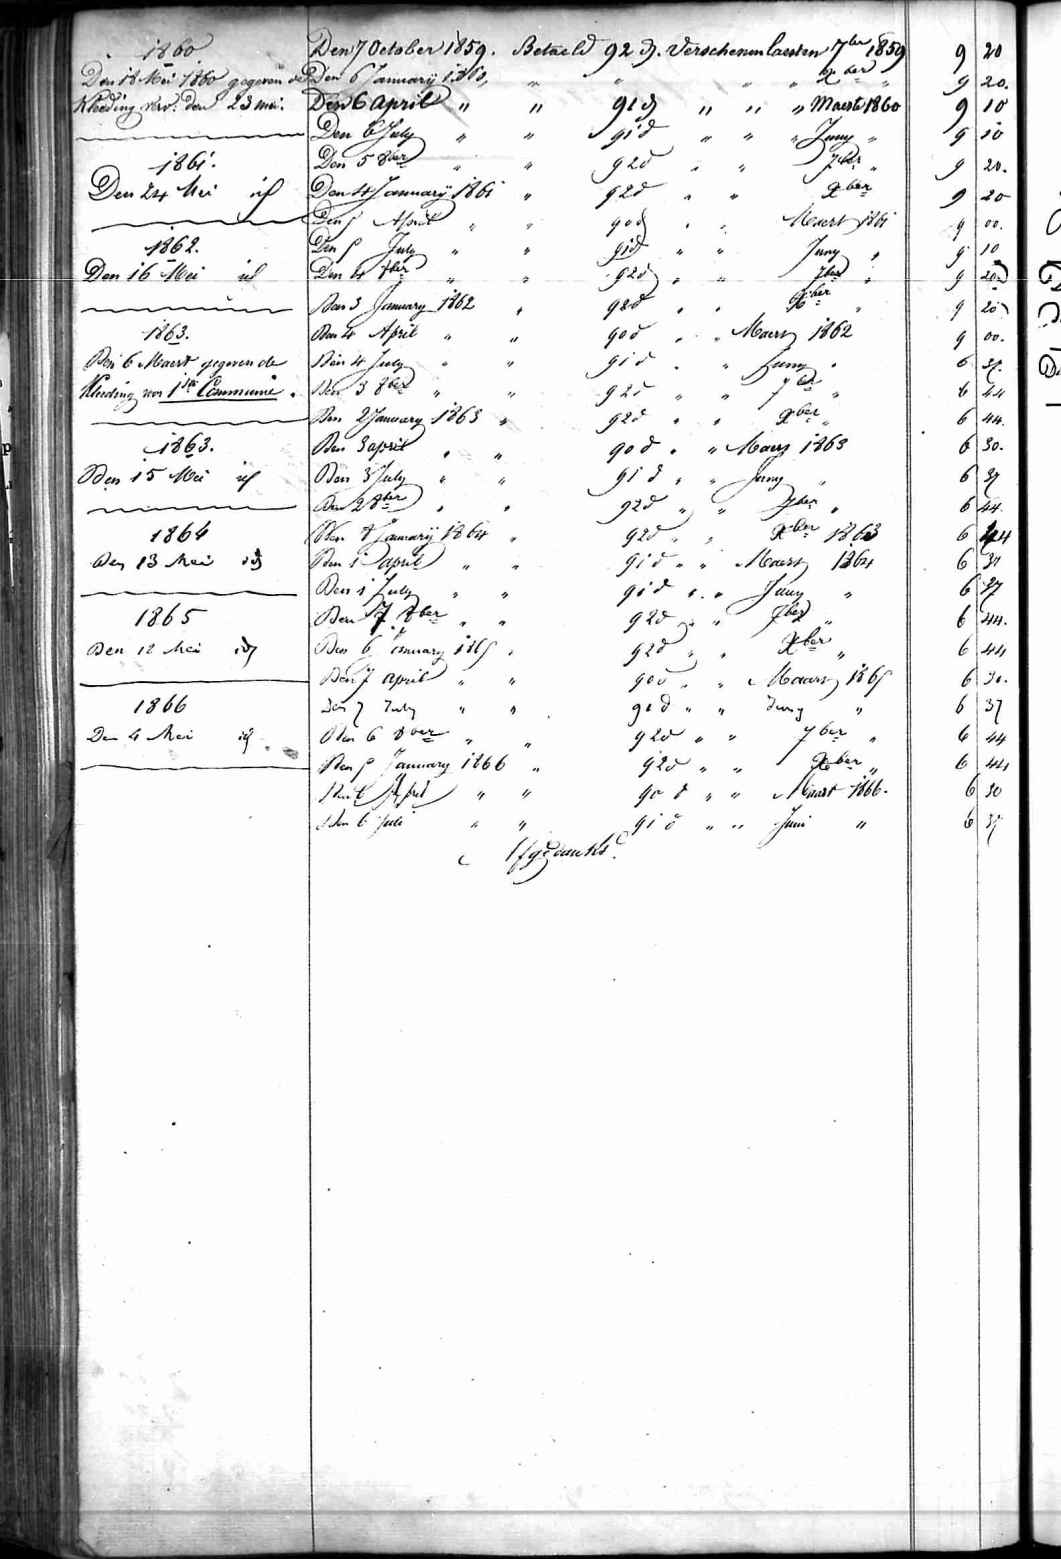 1860
Den 18 Mei 1860 gegeven de
Kleeding verv: den 23 mei.
1861.
Den 24 Mei id
1862.
Den 16 Mei id
1863.
Den 6 Maert gegeven de
Kleeding voor 1ste Communie.
1863.
Den 15 Mei id
1864
Den 13 Mei id
1865
Den 12 Mei id
1866
Den 4 Mei id
Den 7 October 1859. Betaeld 92 d. Verschenen laesten 7ber 1859 9 20
Den 6 January 1860, " " " " " Xber " 9 20.
Den 6 April " " 91 d " " " Maert 1860 9 10
Den 6 July " " 91 d " " " Juny " 9 10
Den 5 8ber " " 92 d " " 7ber " 9 20.
Den 4 January 1861 " 92 d " " Xber 9 20
Den 5 April " " 90 d " " Maert 1861 9 00.
Den 5 July " " 91 d " " Juny " 9 10
Den 4 8ber " " 92 d " " 7ber " 9 20
Den 3 January 1862 " 92 d " " Xber " 9 20
Den 4 April " " 90 d " " Maert 1862 9 00.
Den 4 July " " 91 d " " Juny " 6 37.
Den 3 8ber " " 92 d " " 7ber " 6 44
Den 2 January 1863 " 92 d " " Xber " 6 44.
Den 3 april " " 90 d " " Maert 1863 6 30.
Den 3 July " " 91 d " " Juny " 6 37
Den 2 8ber " " 92 d " " 7ber " 6 44.
Den January 1864 " 92 d " " Xber 1863 6 44
Den 1 april " " 91 d " " Maert 1864 6 37
Den 1 July " " 91 d " " Juny " 6 37
Den 7 8ber " " 92 d " " 7ber " 6 44.
Den 6 January 1865 " 92 d " " Xber " 6 44
Den 7 april " " 90 d " " Maert 1865 6 30.
Den 7 July " " 91 d " " Juny " 6 37
Den 6 8ber " " 92 d " " 7ber " 6 44
Den 5 January 1866 " 92 d " " Xber " 6 44
Den 6 April " " 90 d " " Maart 1866. 6 30
Den 6 Juli " " 91 d " " Juni " 6 37
Afgedankt.